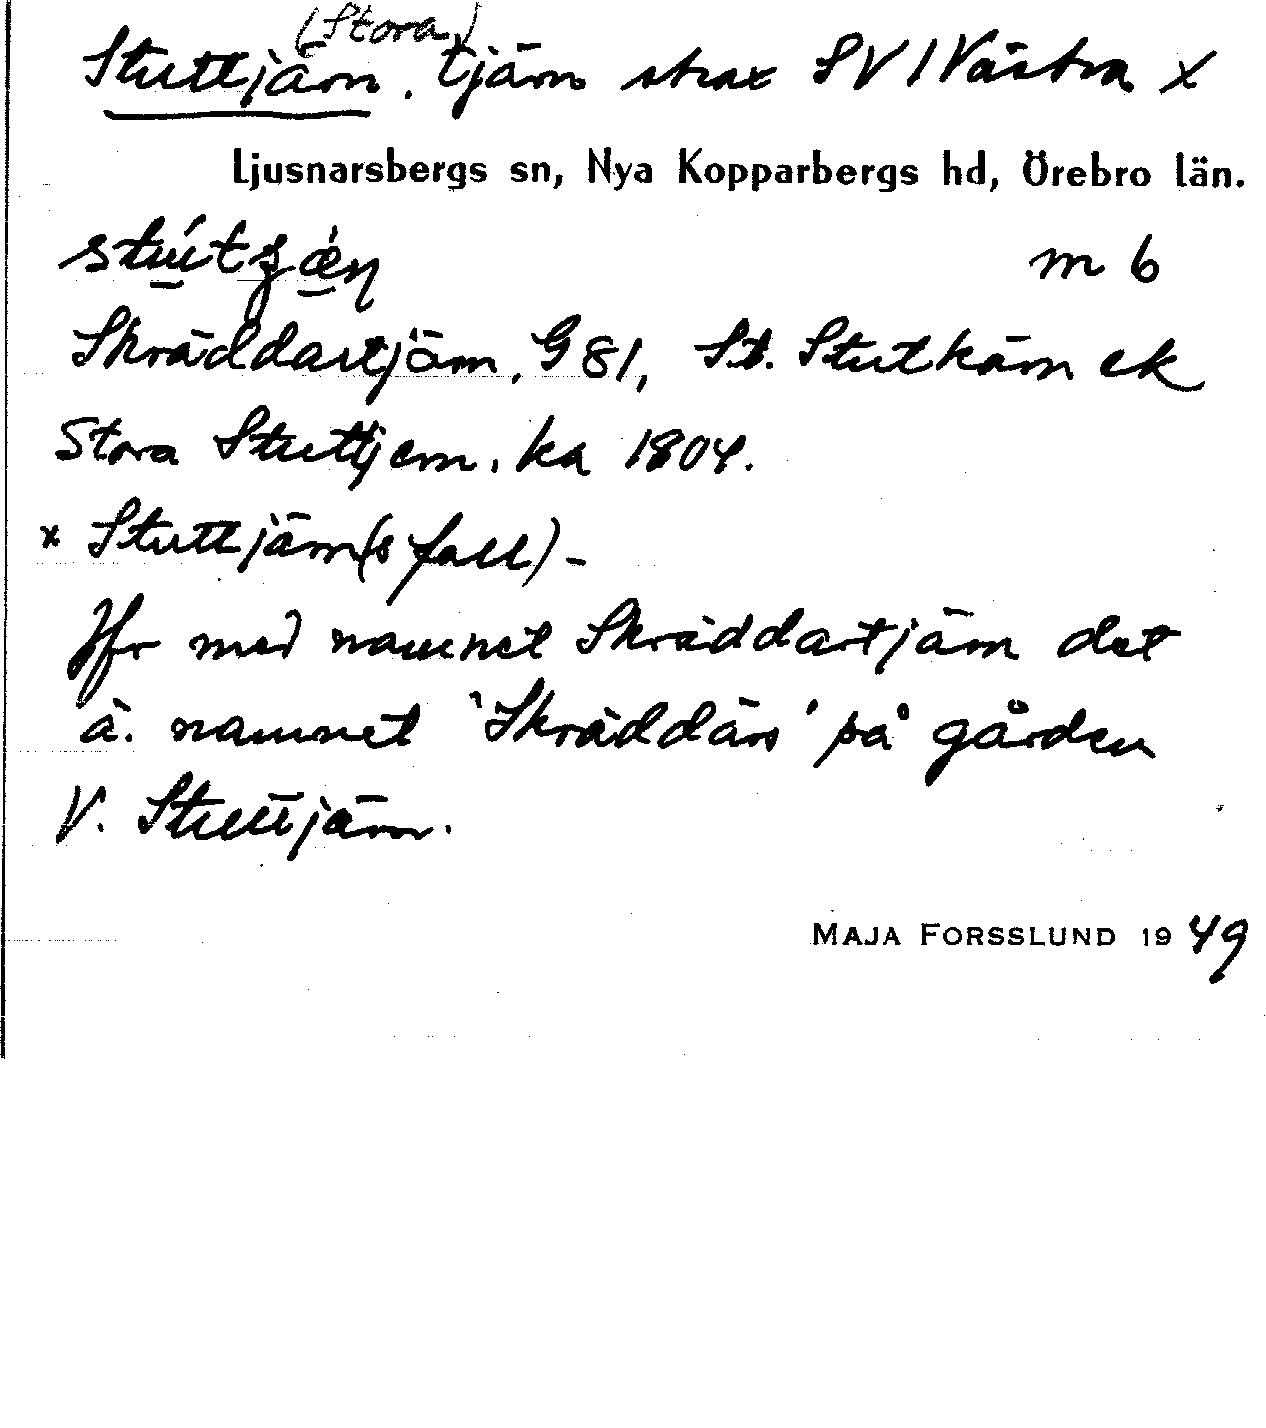 (Stora)
Stuttjärn. tjärn strax SV/Västra x
Ljusnarsbergs sn, Nya Kopparbergs hd, Örebro län.
m 6
Skräddartjärn, G 81, St. Stutkärn ek
Stora Stuttjern. ka 1804.
x Stuttjärn(s fall) -
Jfr med namnet Skräddartjärn det
ä. namnet 'Skräddärs' på gården
V. Stuttjärn.
MAJA FORSSLUND 1949